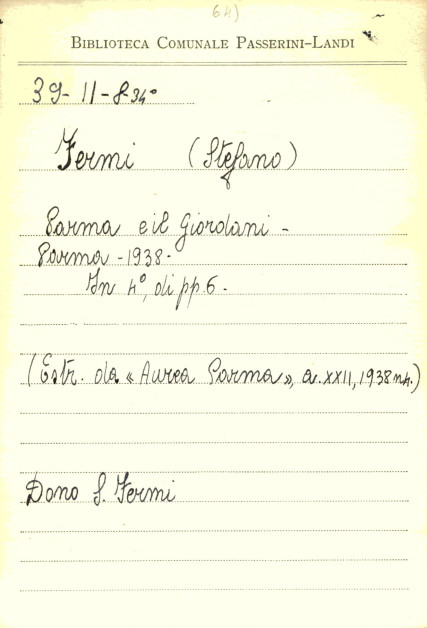 64)
BIBLIOTECA COMUNALE PASSERINI-LANDI
39-11-8-34°
Fermi (Stefano)
Parma e il Giordani -
Parma - 1938 -
In 4°, di pp. 6 -
(Estr. da « Aurea Parma », a. XXII, 1938 n 4.)
Dono S. Fermi